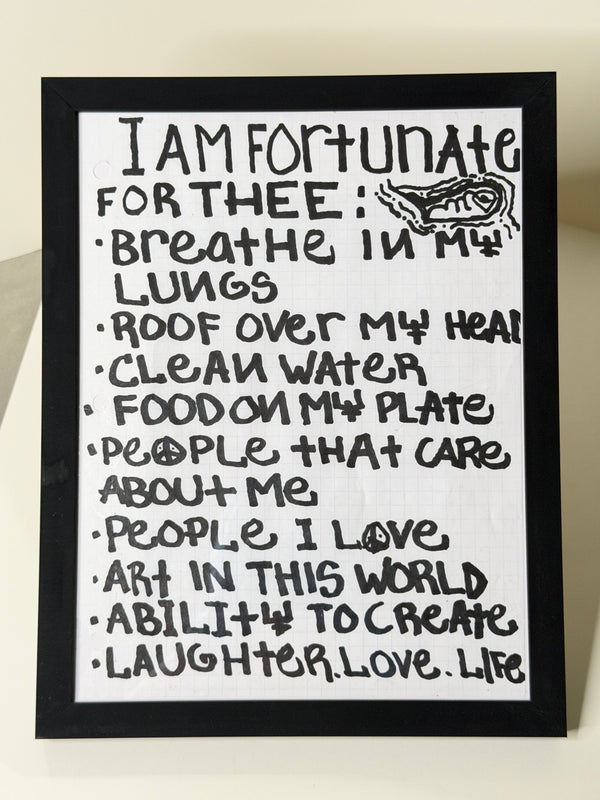 I AM FOrtunAte
FOR THEE:
• BreatHe IN MY
LUNGS
• ROOF Over MY HEAD
• CLEAN WAter
• FOOD ON MY PLAte
• PeOPLe tHAt CARe
ABOUt Me
• PeOPLe I LOve
• ARt IN THIS WORLD
• ABILItY TO CReAte
• LAUGHteR. LOve. LIFe